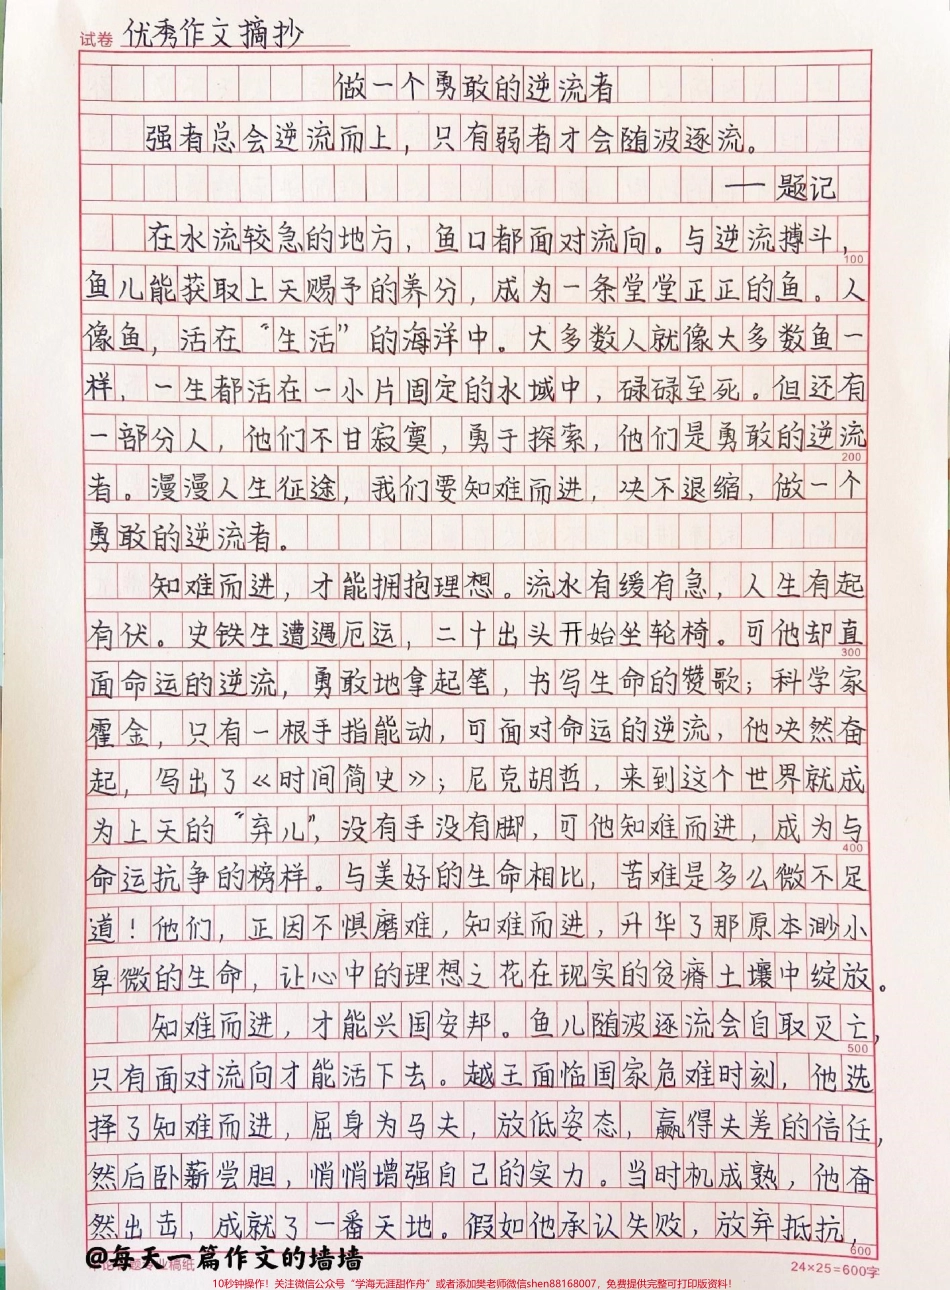 试卷 优秀作文摘抄
做一个勇敢的逆流者
强者总会逆流而上，只有弱者才会随波逐流。
——题记
在水流较急的地方，鱼口都面对流向。与逆流搏斗，
100
鱼儿能获取上天赐予的养分，成为一条堂堂正正的鱼。人
像鱼，活在“生活”的海洋中。大多数人就像大多数鱼一
样，一生都活在一小片固定的水域中，碌碌至死。但还有
一部分人，他们不甘寂寞，勇于探索，他们是勇敢的逆流
200
者。漫漫人生征途，我们要知难而进，决不退缩，做一个
勇敢的逆流者。
知难而进，才能拥抱理想。流水有缓有急，人生有起
有伏。史铁生遭遇厄运，二十出头开始坐轮椅。可他却直
300
面命运的逆流，勇敢地拿起笔，书写生命的赞歌；科学家
霍金，只有一根手指能动，可面对命运的逆流，他决然奋
起，写出了《时间简史》；尼克胡哲，来到这个世界就成
为上天的“弃儿”，没有手没有脚，可他知难而进，成为与
400
命运抗争的榜样。与美好的生命相比，苦难是多么微不足
道！他们，正因不惧磨难，知难而进，升华了那原本渺小
卑微的生命，让心中的理想之花在现实的贫瘠土壤中绽放。
知难而进，才能兴国安邦。鱼儿随波逐流会自取灭亡，
500
只有面对流向才能活下去。越王面临国家危难时刻，他选
择了知难而进，屈身为马夫，放低姿态，赢得夫差的信任，
然后卧薪尝胆，悄悄增强自己的实力。当时机成熟，他奋
然出击，成就了一番天地。假如他承认失败，放弃抵抗，
600
@每天一篇作文的墙墙
24×25=600字
10秒钟操作！关注微信公众号“学海无涯甜作舟”或者添加樊老师微信shen88168007，免费提供完整可打印版资料！